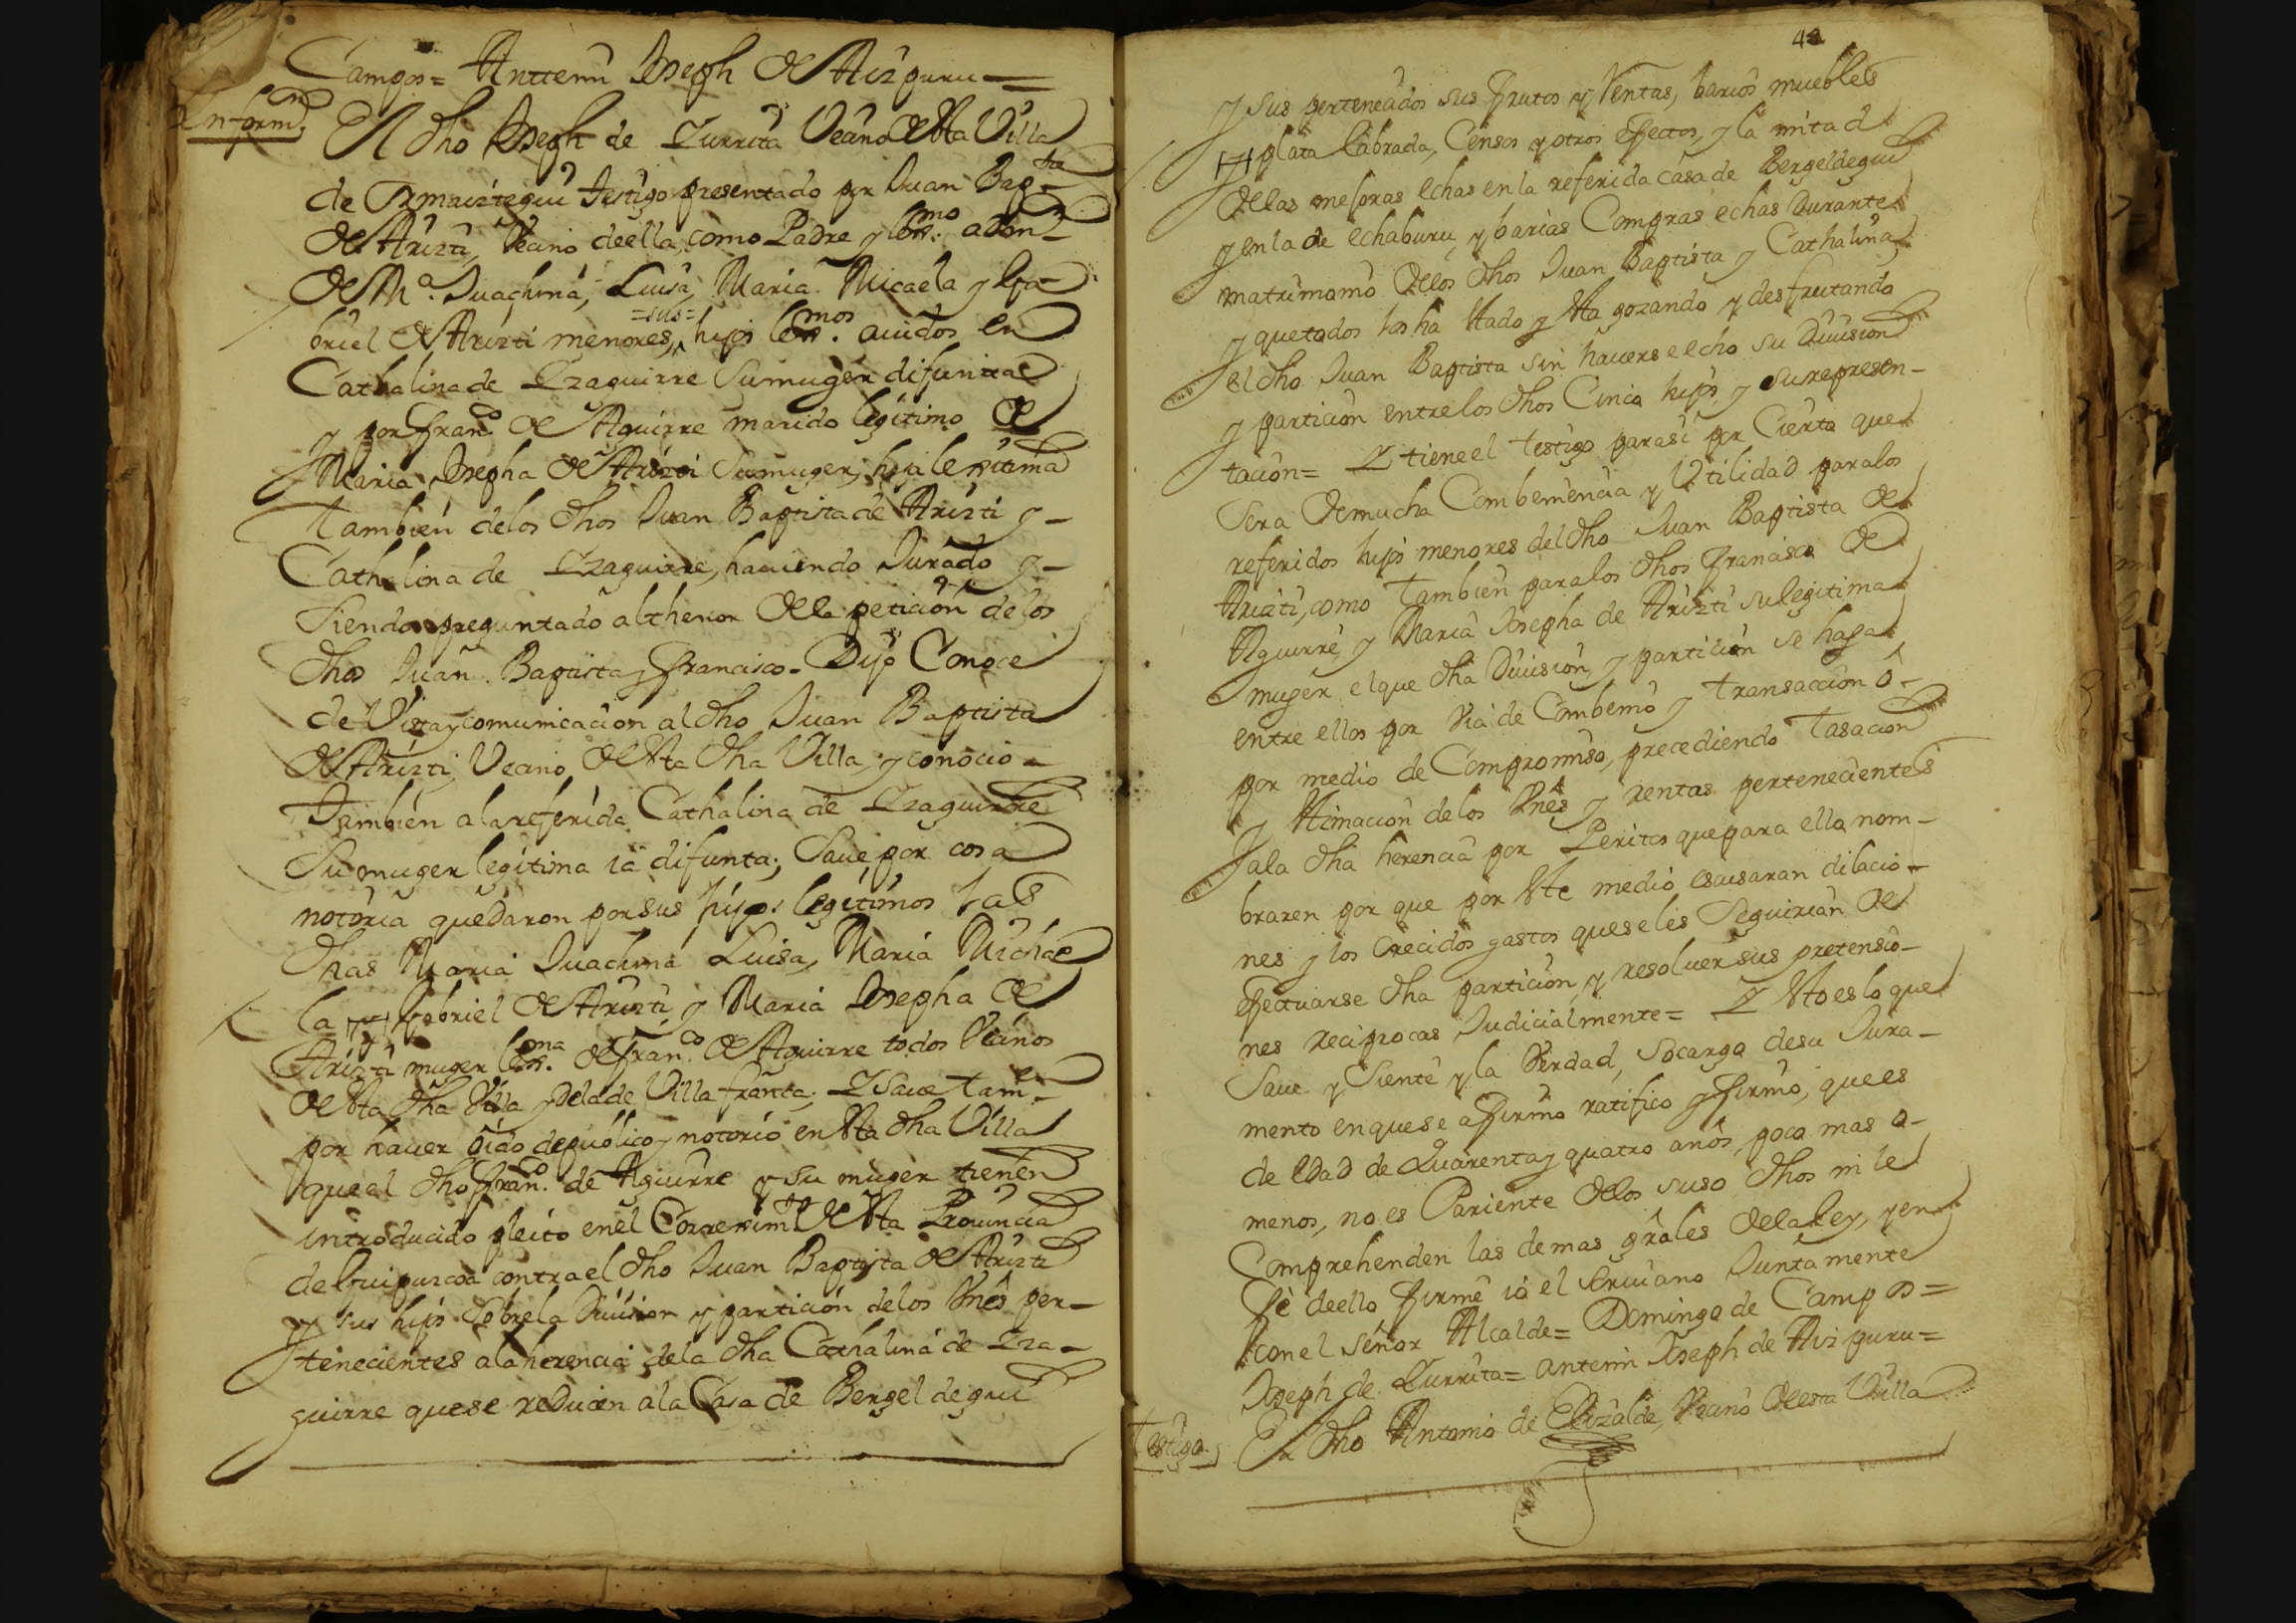 Campos = Anttemi Joseph de Aizpuru =
Informn
El dho Joseph de Zurruta Vecino de sta Villa
de Ormaiztegui testigo presentado por Juan Bapta
de Arizti, Vecino de ella, como Padre y lexmo admr
de Ma. Juachina, Luisa, Maria Micaela y Ga
briel de Arizti menores, =sus= hijos lexmos. auidos en
Cathalina de Yzaguirre Su muger difuntta
y por Franco de Aguirre marido legitimo de
Maria Josepha de Arizti Su muger, hija lexitima
tambien de los dhos Juan Baptista de Arizti y -
Cathalina de Yzaguirre, hauiendo Jurado y -
Siendo preguntado al thenor de la peticion de los
dhos Juan Baptista y Francisco - Dijo Conoce
de Vista y comunicacion al dho Juan Baptista
de Arizti, Vecino de sta dha Villa, y conocio -
Tambien a la referida Cathalina de Yzaguirre
Su muger legitima ia difunta; Saue por cosa
notoria quedaron por sus hijos legitimos las
dhas Maria Juachina Luisa, Maria Michae
la y Gabriel de Arizti, y Maria Josepha de
Arizti muger lexma. de Franco. de Aguirre todos Vecinos
de sta dha Villa y de la de Villafranca; Y Saue tamn
por hauer oido de publico y notorio en sta dha Villa
que el dho Franco. de Aguirre y su muger tienen
introducido pleito en el Correximto de sta Prouincia
de Guipuzcoa contra el dho Juan Baptista de Arizti
y sus hijos Sobre la Diuision y particion de los Vnes per-
tenecientes a la herencia de la dha Cathalina de Yza-
guirre que se reducen a la Casa de Bergeldegui
42
y sus pertenecidos sus frutos y Rentas, barios muebles
y plata labrada, Censos y otros efectos, y la mitad
de las mejoras echas en la referida casa de Bergeldegui
y en la de echaburu, y barias Compras echas Durante
matrimonio de los dhos Juan Baptista y Cathalina,
y que todos los ha stado y sta gozando y desfrutando
el dho Juan Baptista sin hauerse echo su Diuision
y particion entre los dhos Cinco hijos, y su represen-
tacion = Y tiene el testigo para si por Cierto que
Sera de mucha Combeniencia y Vtilidad para los
referidos hijos menores del dho Juan Baptista de
Arizti, como tambien para los dhos Francisco de
Aguirre y Maria Josepha de Arizti su legitima
muger, el que dha Diuision y particion se haga
entre ellos por via de Combenio y transaccion ô -
por medio de Compromiso, precediendo tasacion
y stimacion de los Vnes y rentas pertenecientes
a la dha herencia por Peritos que para ello nom-
braren por que por ste medio escusaran dilacio-
nes y los crecidos gastos que se les Seguirian de
efectuarse dha particion, y resoluer sus pretensio-
nes reciprocas Judicialmente = Y sto es lo que
Saue y Siente y la Verdad, Socargo de su Jura-
mento en que se afirmo ratifico y firmo, que es
de edad de Quarenta y quatro años poco mas o -
menos, no es Pariente de los suso dhos ni le
Comprehenden las demas grâles de la ley, y en
feè de ello firmè iò el escriuano Juntamente
con el Señor Alcalde = Domingo de Campos =
Joseph de Zurruta = antemi Joseph de Aizpuru =
Testigo
El dho Antonio de Elizalde, Vecino de esta Villa